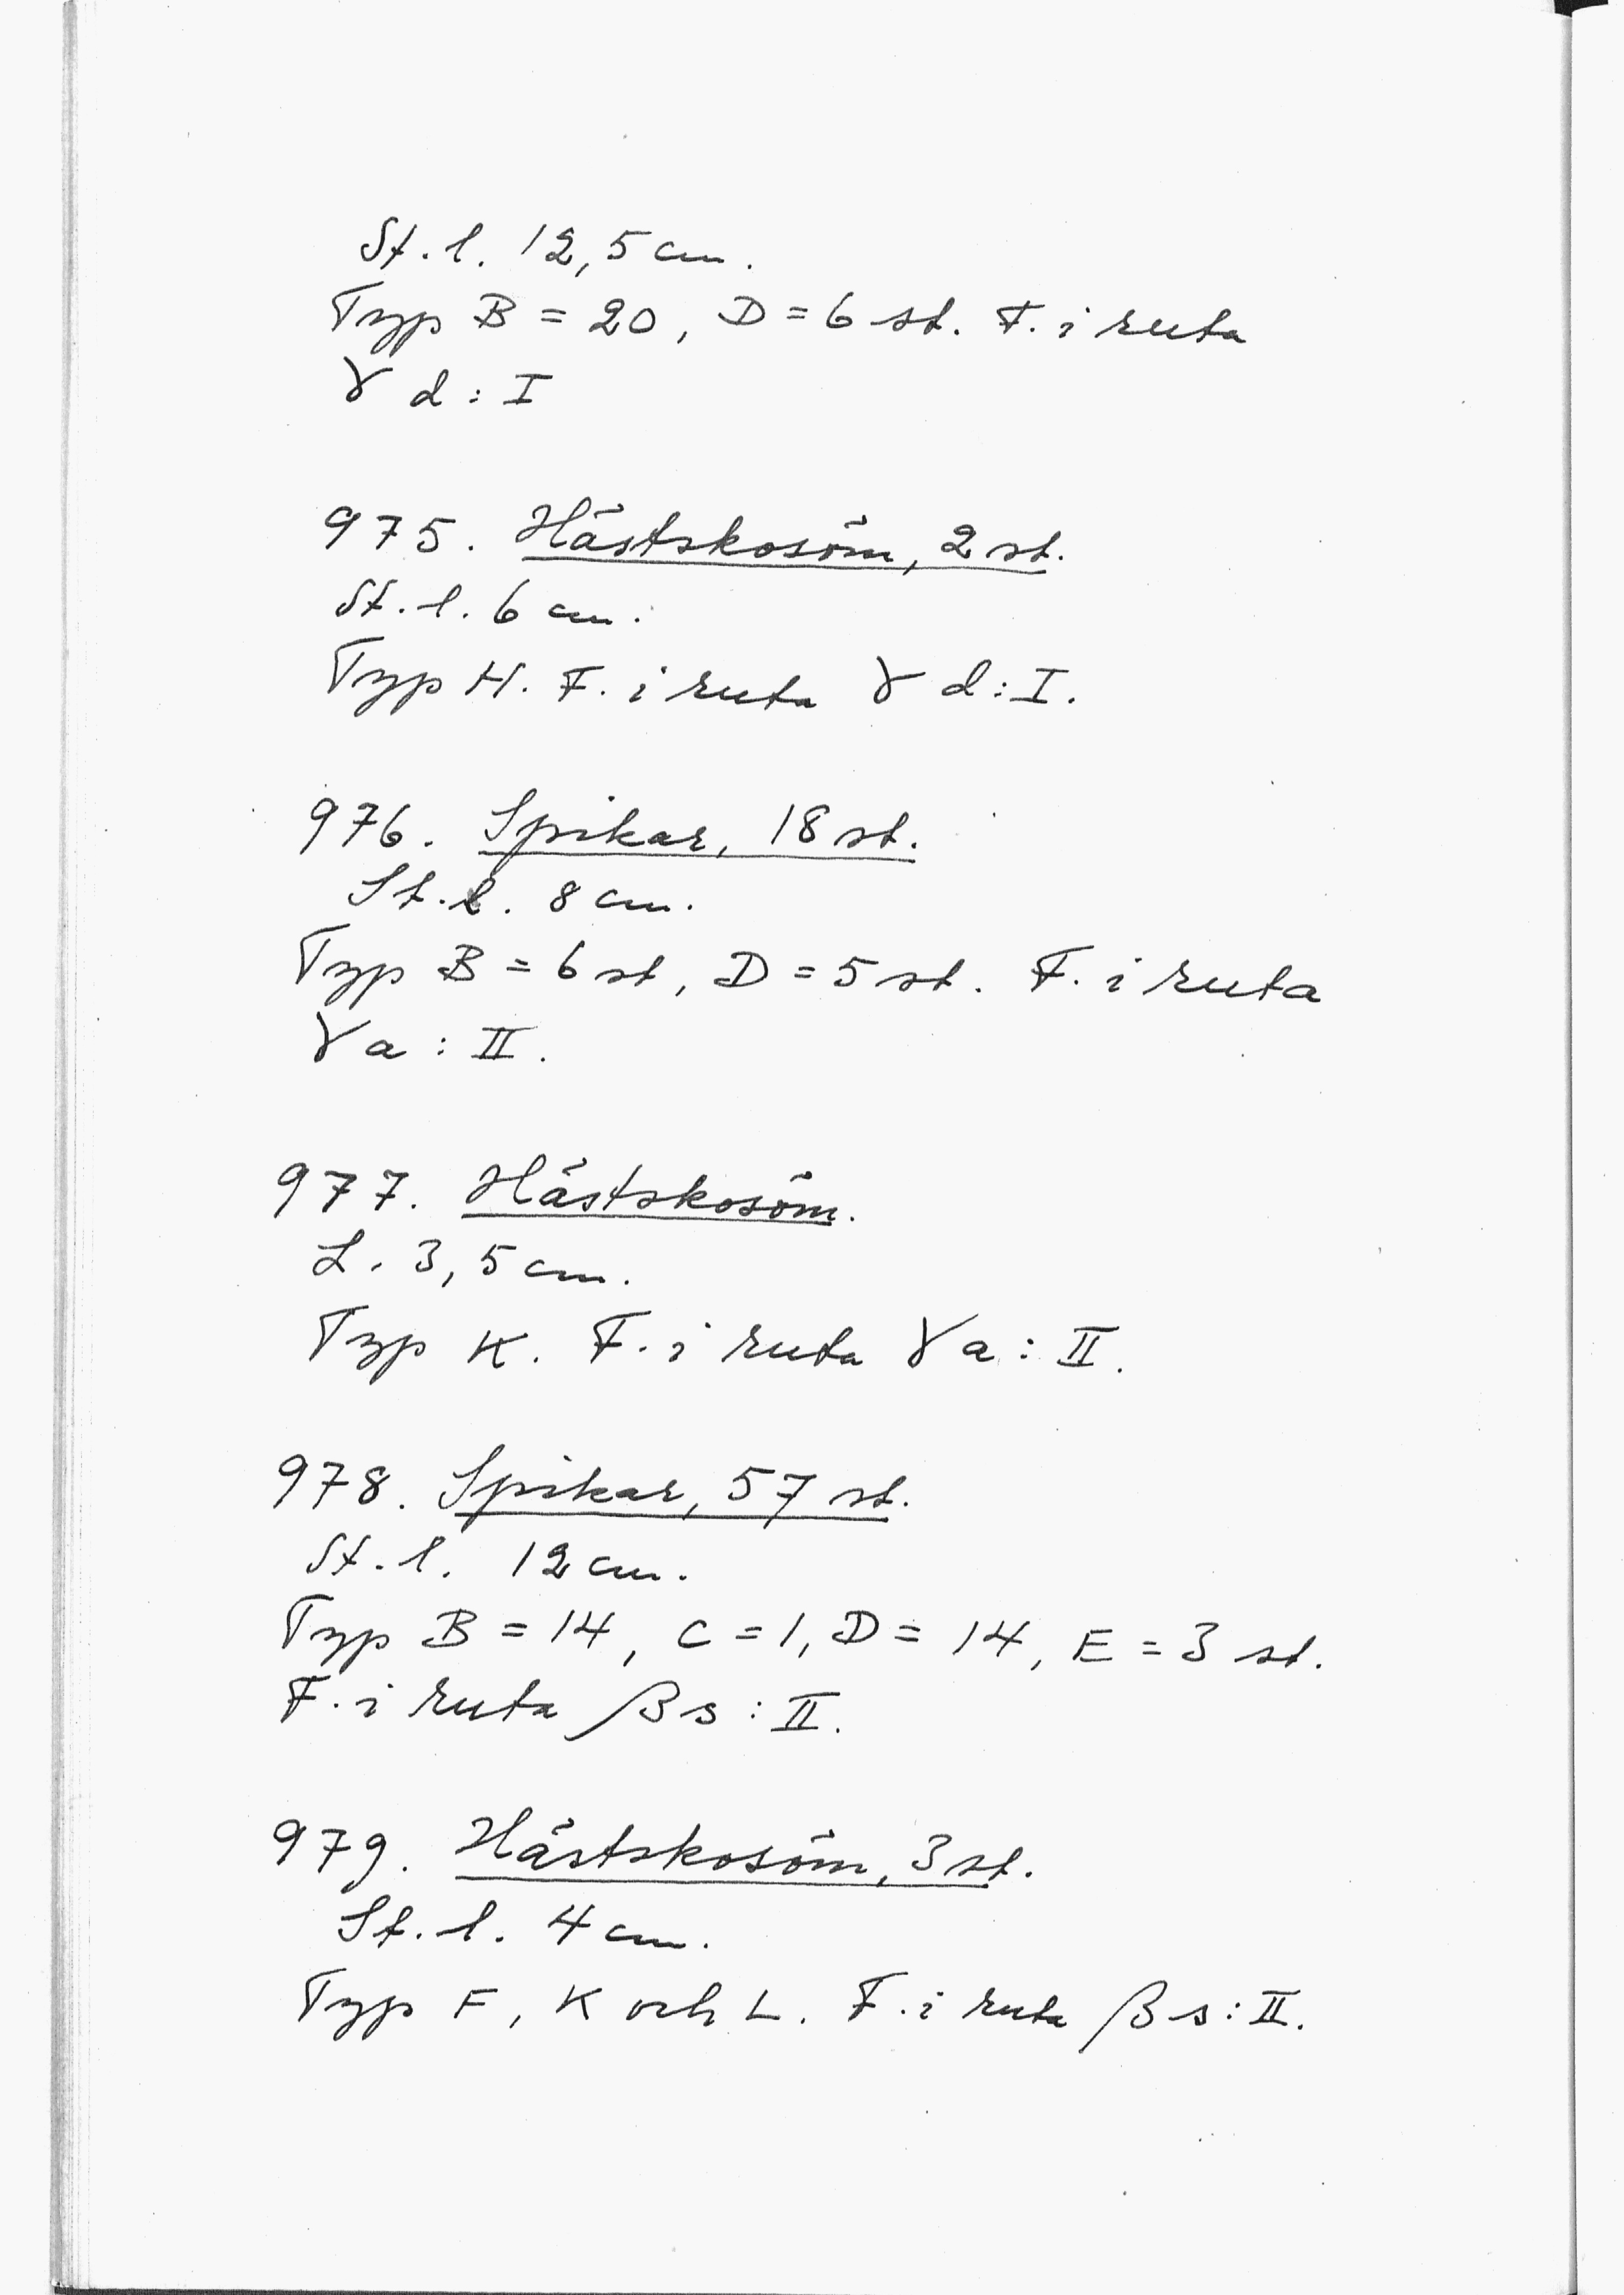 St. l. 12,5 cm.
Typ B = 20, D = 6 st. F. i ruta
γ d : I
975. Hästskosöm, 2 st.
St. l. 6 cm.
Typ H. F. i ruta γ d : I.
976. Spikar, 18 st.
St. l. 8 cm.
Typ B = 6 st, D = 5 st. F. i ruta
γ a : II.
977. Hästskosöm.
L. 3,5 cm.
Typ K. F. i ruta γ a : II.
978. Spikar, 57 st.
St. l. 12 cm.
Typ B = 14, C = 1, D = 14, E = 3 st.
F. i ruta β s : II.
979. Hästskosöm, 3 st.
St. l. 4 cm.
Typ F, K och L. F. i ruta β s : II.